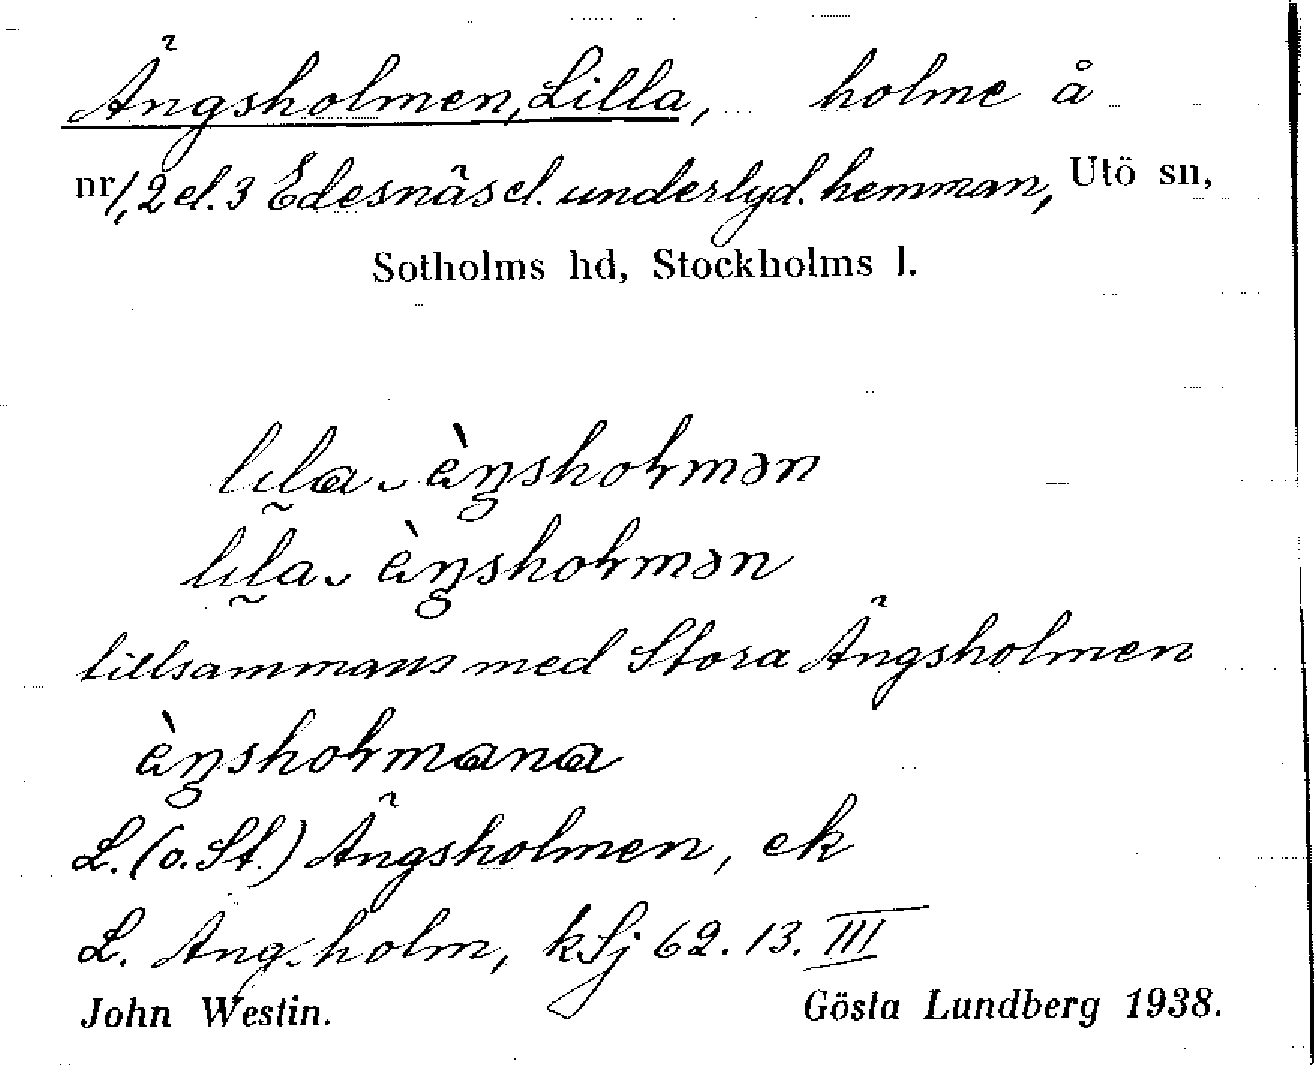 Ängsholmen, Lilla, holme å
nr 1, 2 el. 3 Edesnäs el. underlyd. hemman, Utö sn,
Sotholms hd, Stockholms l.
lɩl̰ɑ ̮ ὲŋshoɫmən
lɩl̰a ̮ ὲŋshoɫmən
tillsammans med Stora Ängsholmen
ὲŋshoɫmɑnɑ
L. (o. St.) Ängsholmen, ek
L. Angholm, kSj 62. 13. III
John Westin. Gösta Lundberg 1938.